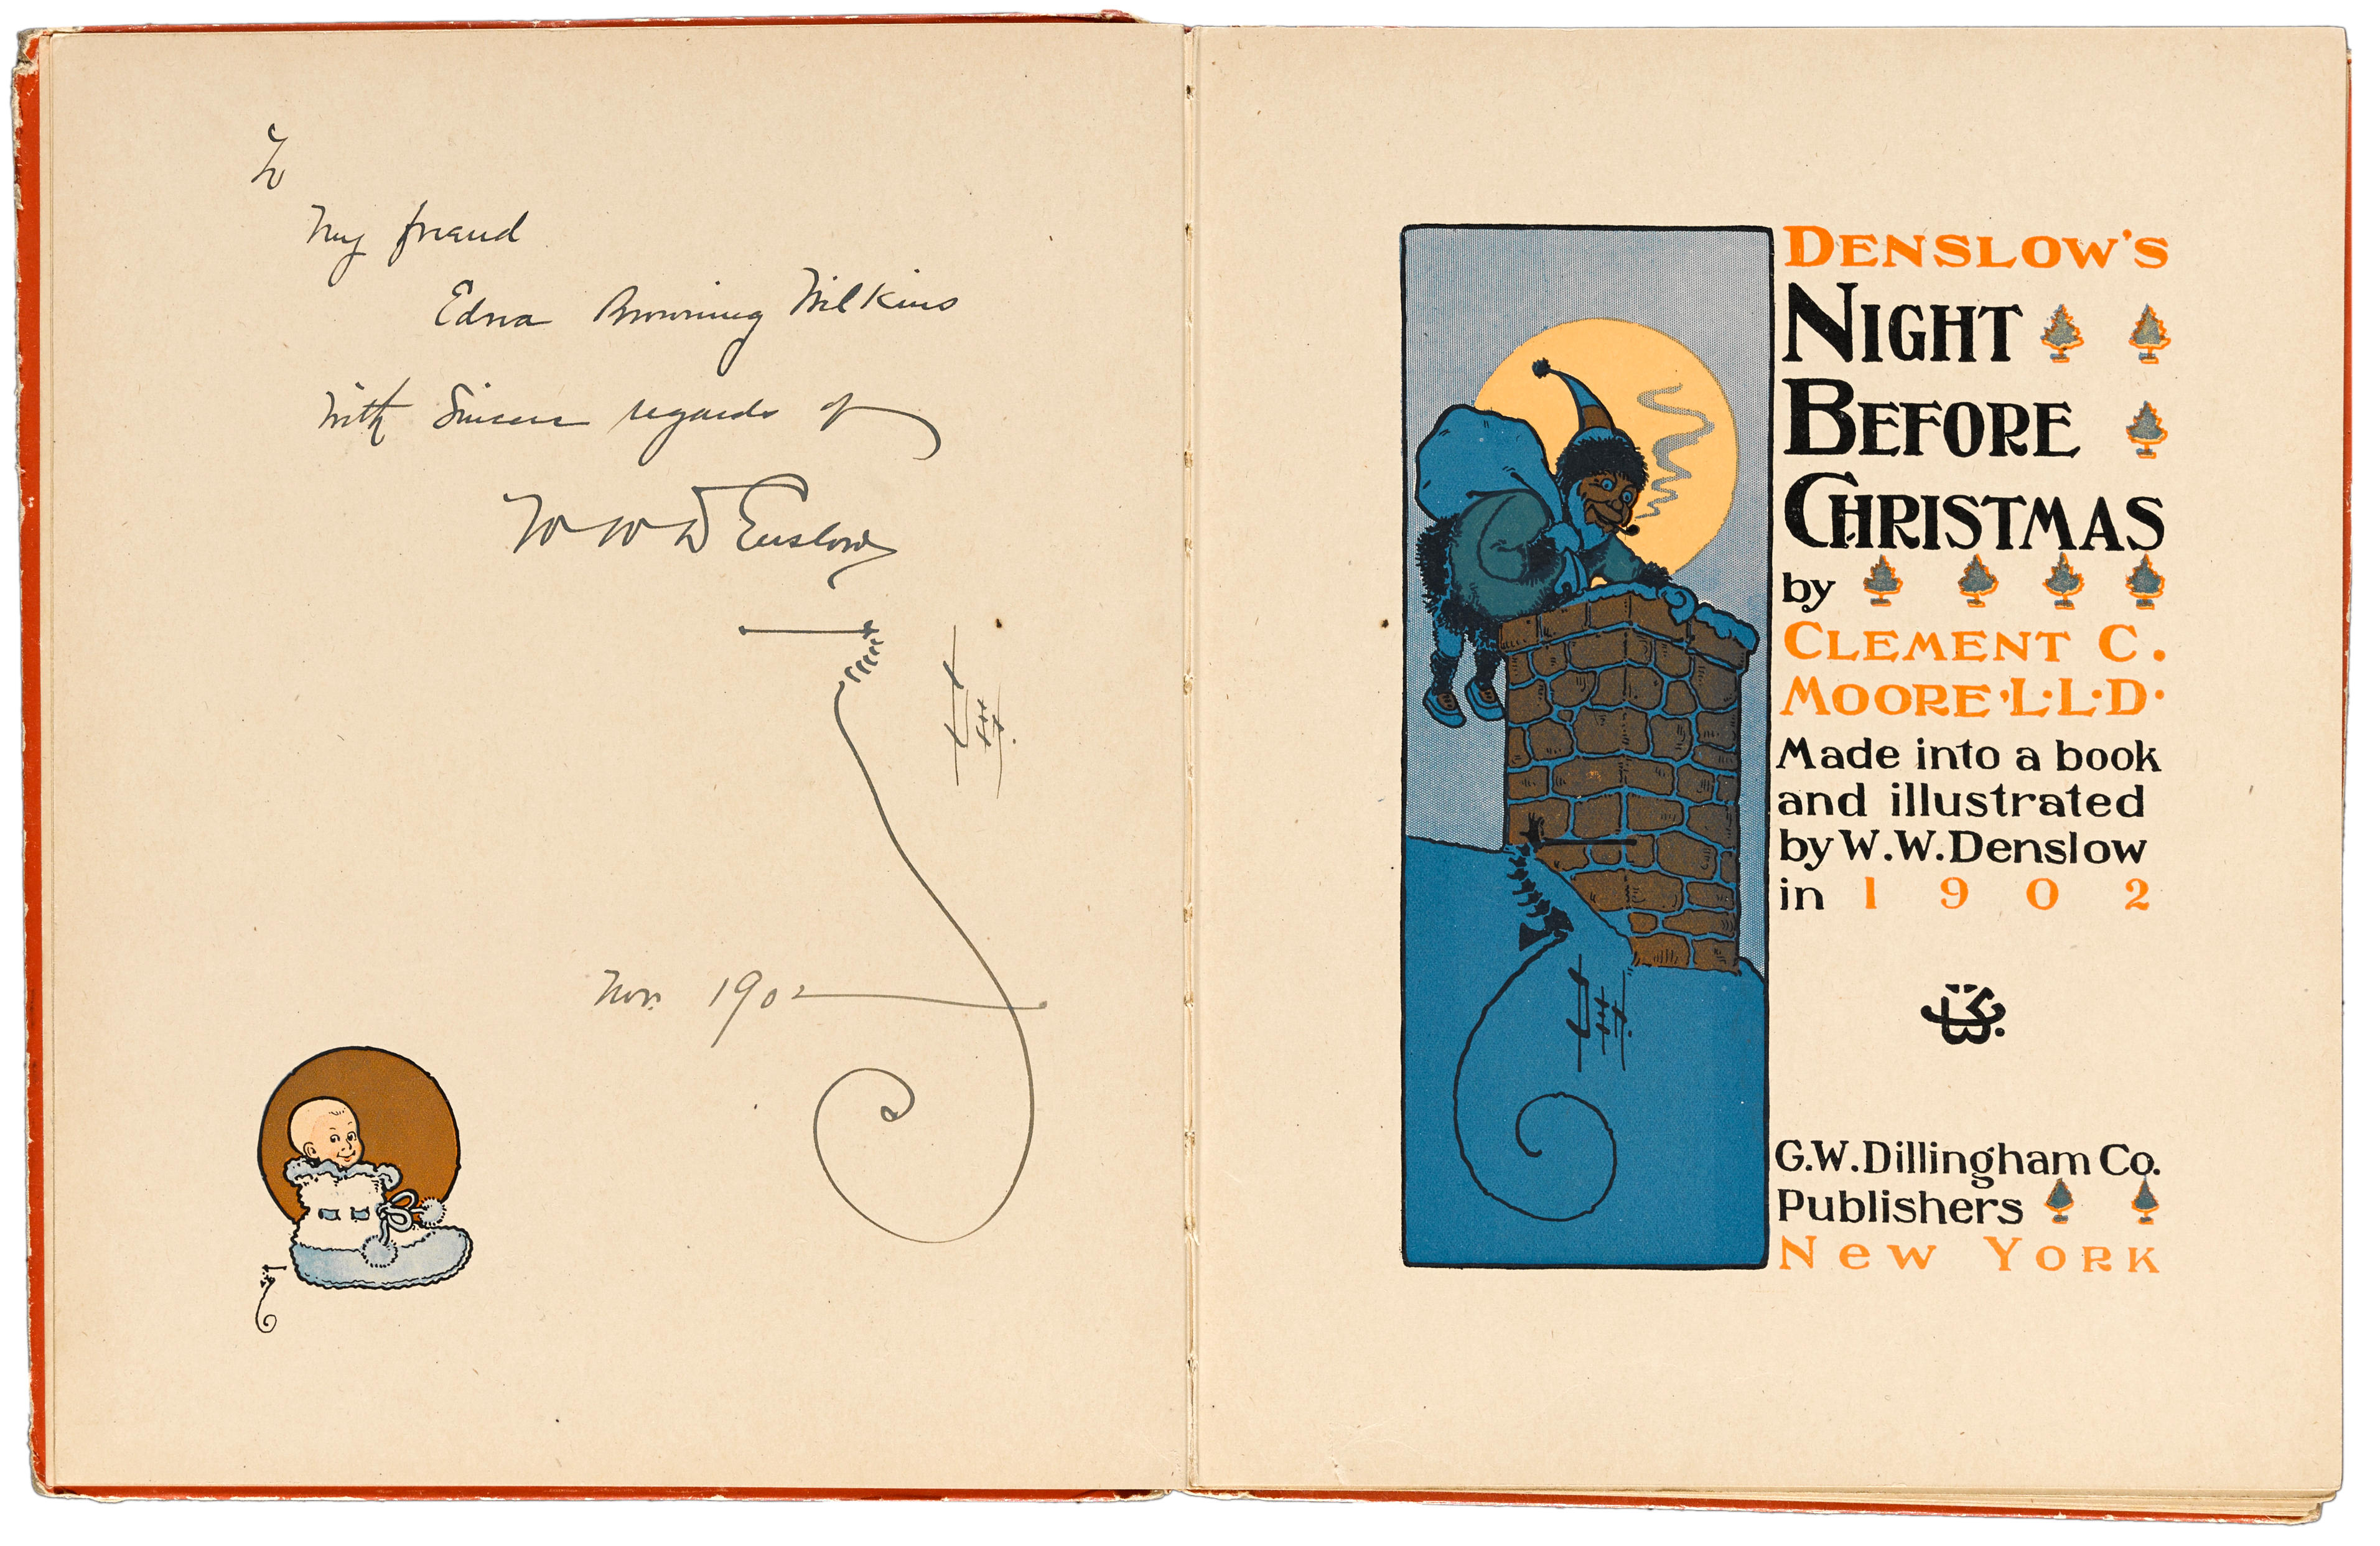 To
My friend
Edna Browning Wilkins
With Sincere regards of
W W Denslow
Nov. 1902
DENSLOW'S
NIGHT
BEFORE
CHRISTMAS
by
CLEMENT C.
MOORE·L·L·D·
Made into a book
and illustrated
by W.W.Denslow
in 1902
G.W.Dillingham Co.
Publishers
NEW YORK